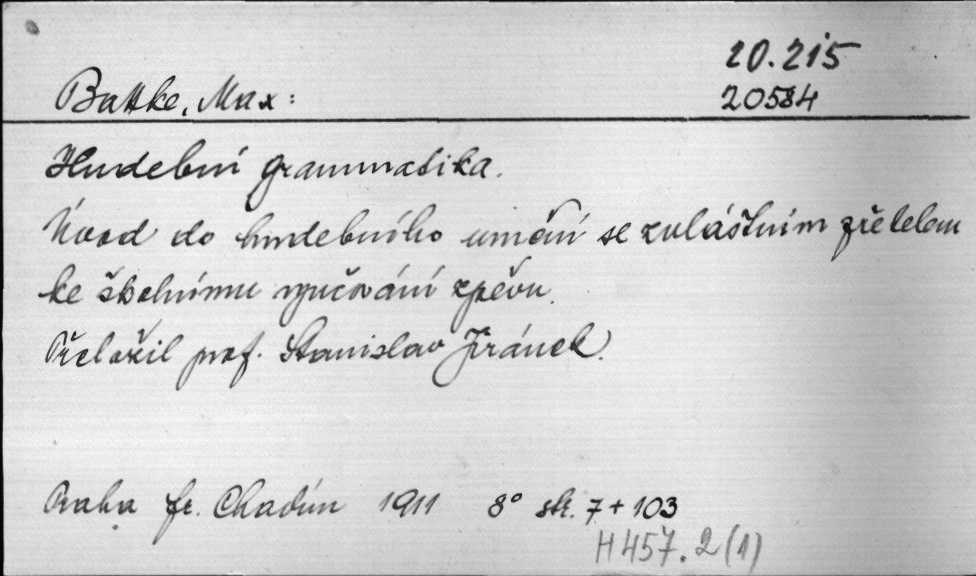 20.215
Battke, Max:
20584
Hudební grammatika.
Úvod do hudebního umění se zvláštním zřetelem
ke školnímu vyučování zpěvu.
Přeložil prof. Stanislav Jiránek.
Praha Fr. Chadím 1911 8° str. 7+103
H457.2(1)